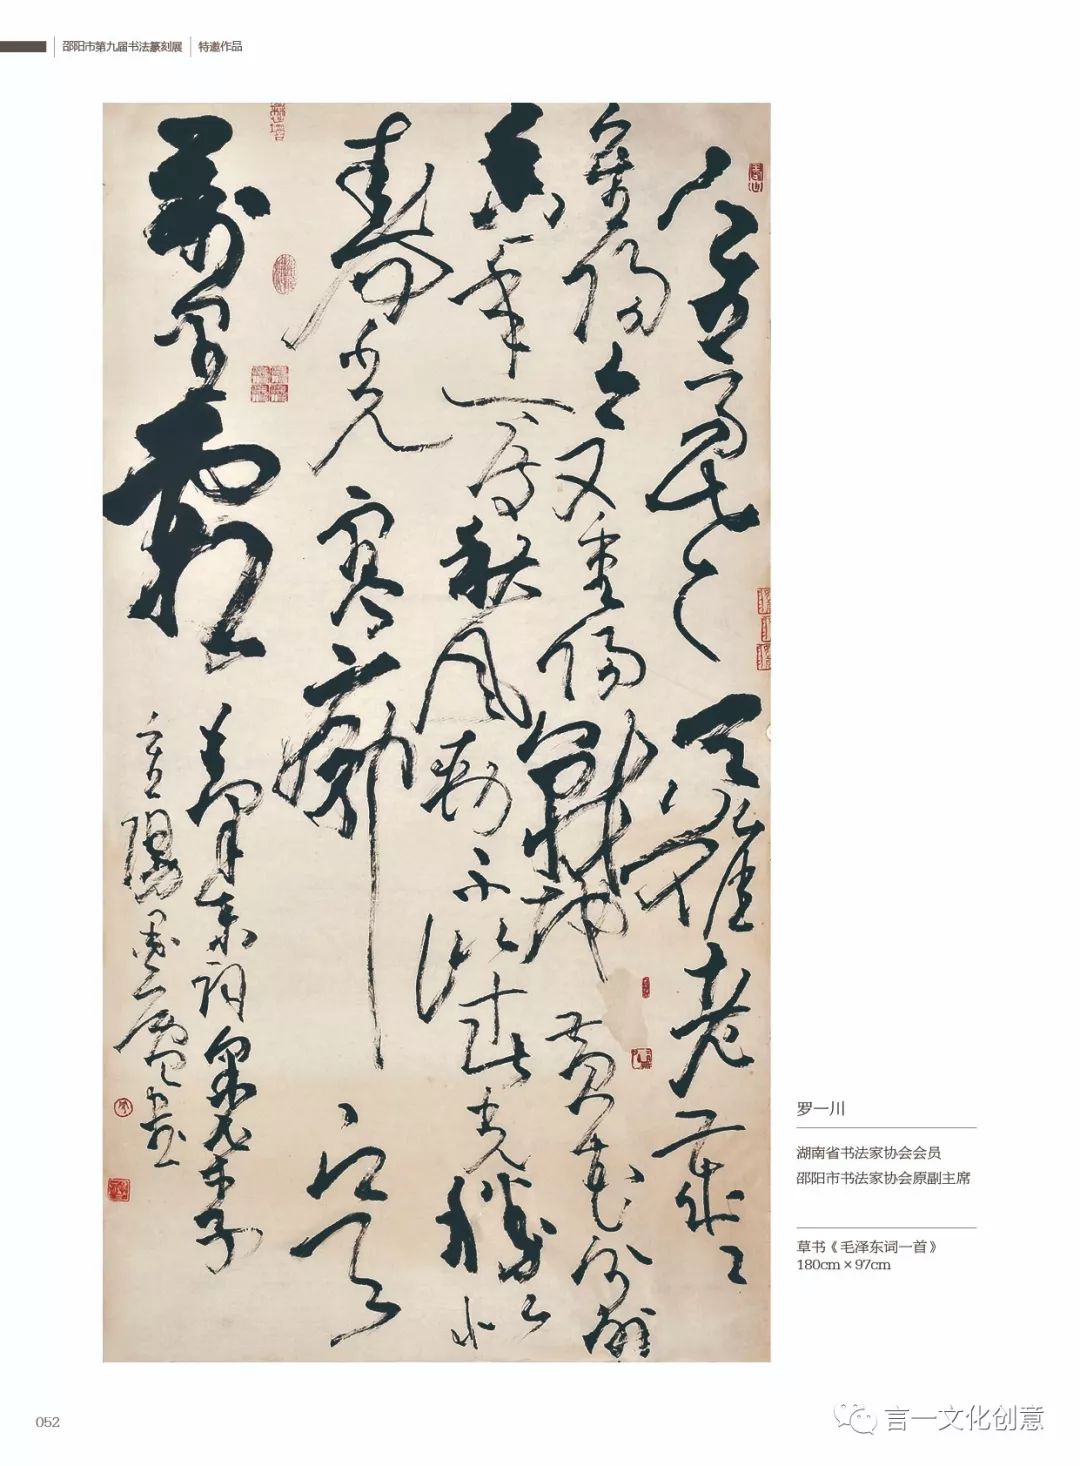 邵阳市第九届书法篆刻展 特邀作品
人生易老天難老歲〻
重陽今又重陽戰地黃花分外
香一年一度秋風勁不似春光勝似
春光寥廓江天
萬里霜
毛澤東詞采桑子
重陽
罗一川
湖南省书法家协会会员
邵阳市书法家协会原副主席
草书《毛泽东词一首》
180cm×97cm
052
言一文化创意